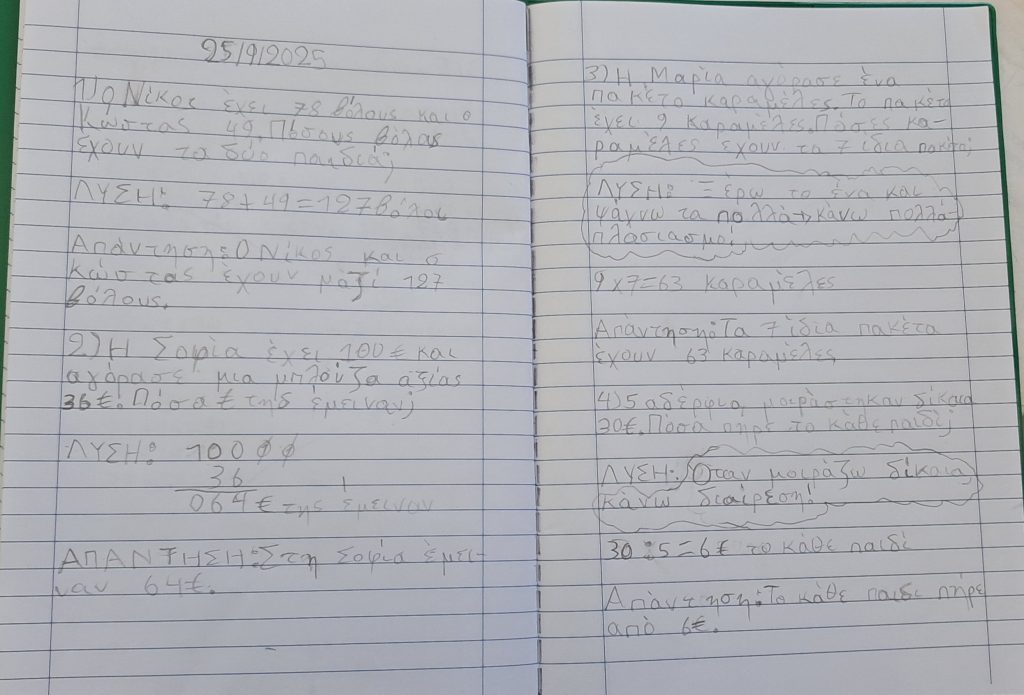 25/9/2025
1) Ο Νίκος έχει 78 βόλους και ο
Κώστας 49. Πόσους βόλους
έχουν τα δύο παιδιά;
ΛΥΣΗ: 78+49=127 βόλοι
Απάντηση: Ο Νίκος και ο
Κώστας έχουν μαζί 127
βόλους.
2) Η Σοφία έχει 100€ και
αγόρασε μια μπλούζα αξίας
36€. Πόσα € της έμειναν;
ΛΥΣΗ: 100
36
064€ της έμειναν
ΑΠΑΝΤΗΣΗ: Στη Σοφία έμει-
ναν 64€.
3) Η Μαρία αγόρασε ένα
πακέτο καραμέλες. Το πακέτο
έχει 9 καραμέλες. Πόσες κα-
ραμέλες έχουν τα 7 ίδια πακέτα;
ΛΥΣΗ: Ξέρω το ένα και
ψάχνω τα πολλά→κάνω πολλα-
πλασιασμό!
9x7=63 καραμέλες
Απάντηση: Τα 7 ίδια πακέτα
έχουν 63 καραμέλες
4) 5 αδέρφια μοιράστηκαν δίκαια
30€. Πόσα πήρε το κάθε παιδί;
ΛΥΣΗ: Όταν μοιράζω δίκαια
κάνω διαίρεση!
30:5=6€ το κάθε παιδί
Απάντηση: Το κάθε παιδί πήρε
από 6€.